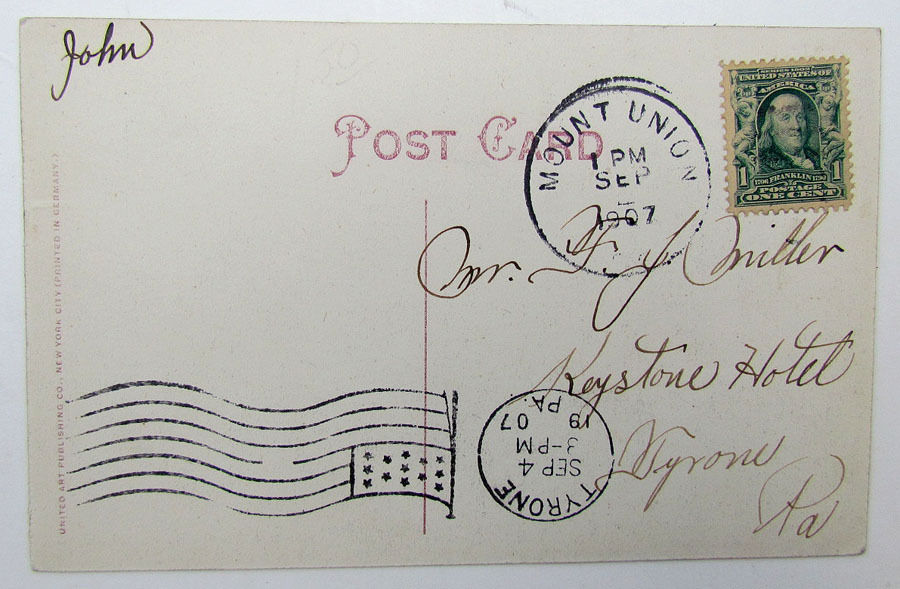 John
POST CARD
MOUNT UNION
1 PM
SEP
1907
SERIES 1902
UNITED STATES OF
AMERICA
1706 FRANKLIN 1790
1 POSTAGE 1
ONE CENT
Mr. F. J. Miller
Keystone Hotel
Tyrone
Pa
TYRONE
SEP 4
3-PM
19 07
PA.
UNITED ART PUBLISHING CO., NEW YORK CITY (PRINTED IN GERMANY.)